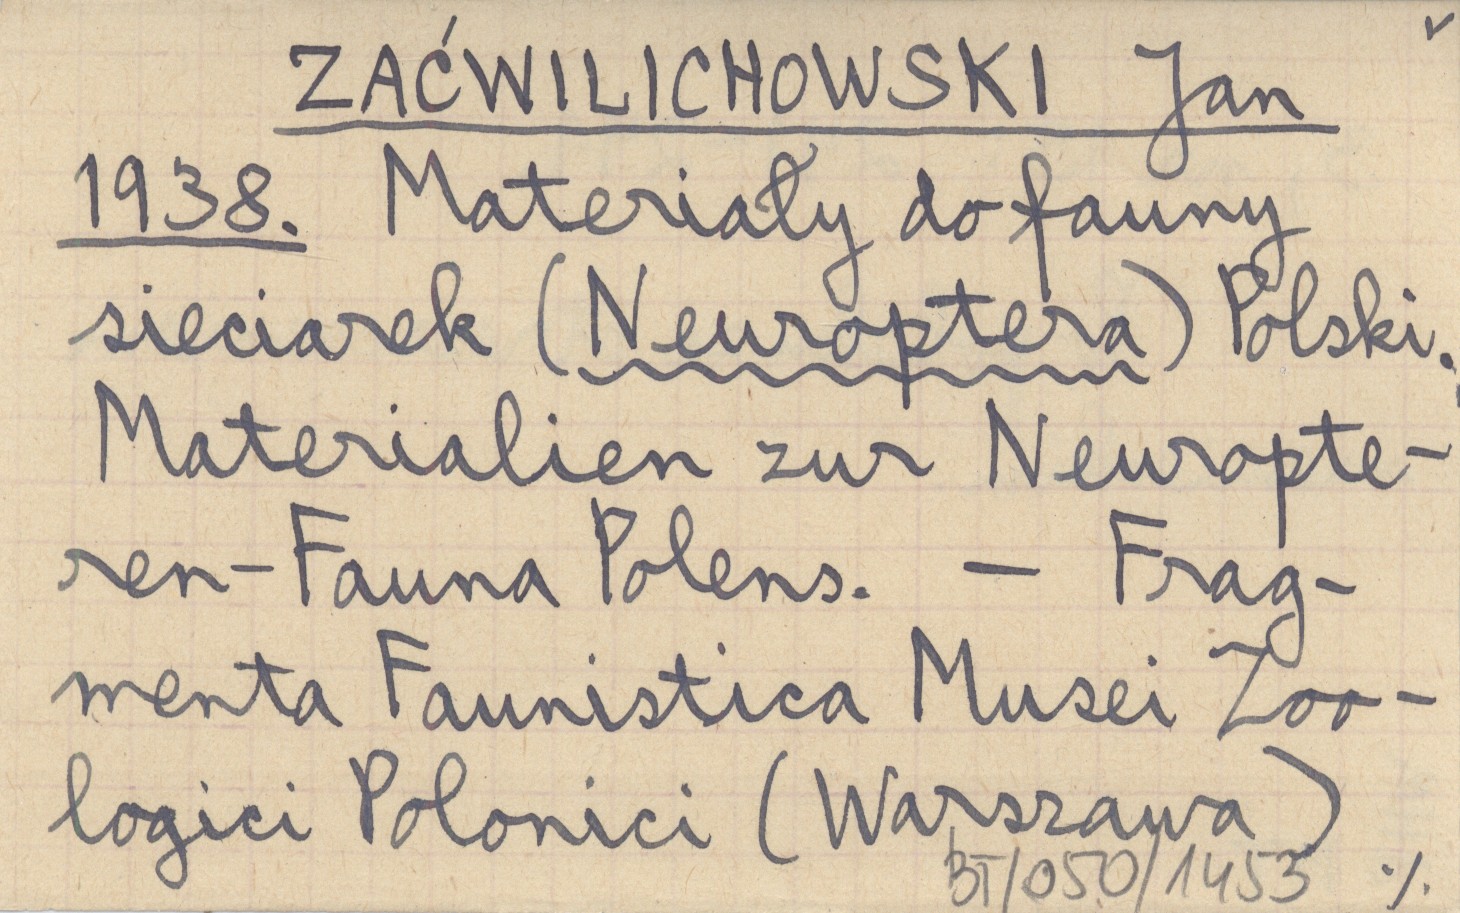 ZAĆWILICHOWSKI Jan
1938. Materiały do fauny
sieciarek (Neuroptera) Polski.
Materialien zur Neuropte-
ren-Fauna Polens. — Frag-
menta Faunistica Musei Zoo-
logici Polonici (Warszawa)
BT/050/1453 ·/.